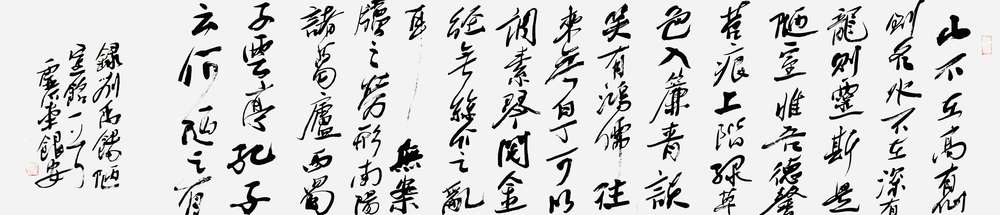 山不在高有仙
则名水不在深有
龍则靈斯是
陋室惟吾德馨
苔痕上階緑草
色入簾青談
笑有鴻儒往
来无白丁可以
調素琴閲金
經无絲竹之亂
耳 無案
牘之勞形南陽
諸葛廬西蜀
子雲亭孔子
云何陋之有
録劉禹錫陋
室銘一
廣東銀安